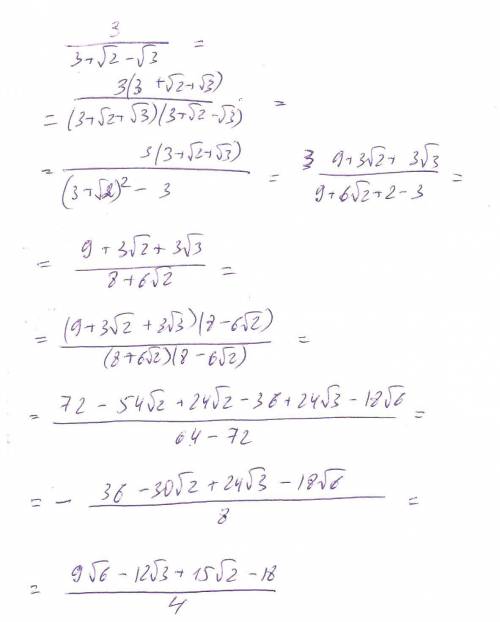 3/(3+√2-√3) =
= 3(3+√2+√3)/((3+√2+√3)(3+√2-√3)) =
= 3(3+√2+√3)/((3+√2)² - 3) = (9+3√2+3√3)/(9+6√2+2-3) =
= (9+3√2+3√3)/(8+6√2) =
= (9+3√2+3√3)(8-6√2)/((8+6√2)(8-6√2)) =
= (72 - 54√2 + 24√2 - 36 + 24√3 - 18√6)/(64-72) =
= - (36 - 30√2 + 24√3 - 18√6)/8 =
= (9√6 - 12√3 + 15√2 - 18)/4